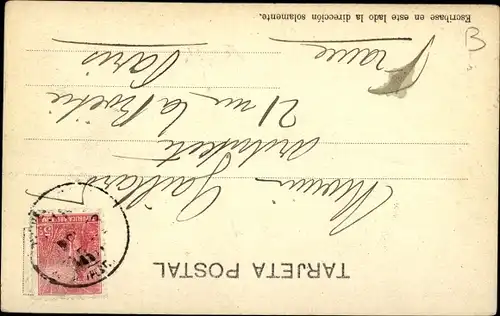 TARJETA POSTAL
Monsieur Gaillard
architecte
21 rue La Boëtie
Paris
France
Escríbase en este lado la dirección solamente.
B